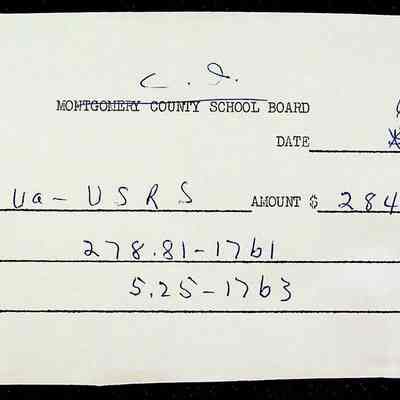 C. I.
MONTGOMERY COUNTY SCHOOL BOARD
DATE
Va - USRS AMOUNT $ 284
278.81-1761
5.25-1763